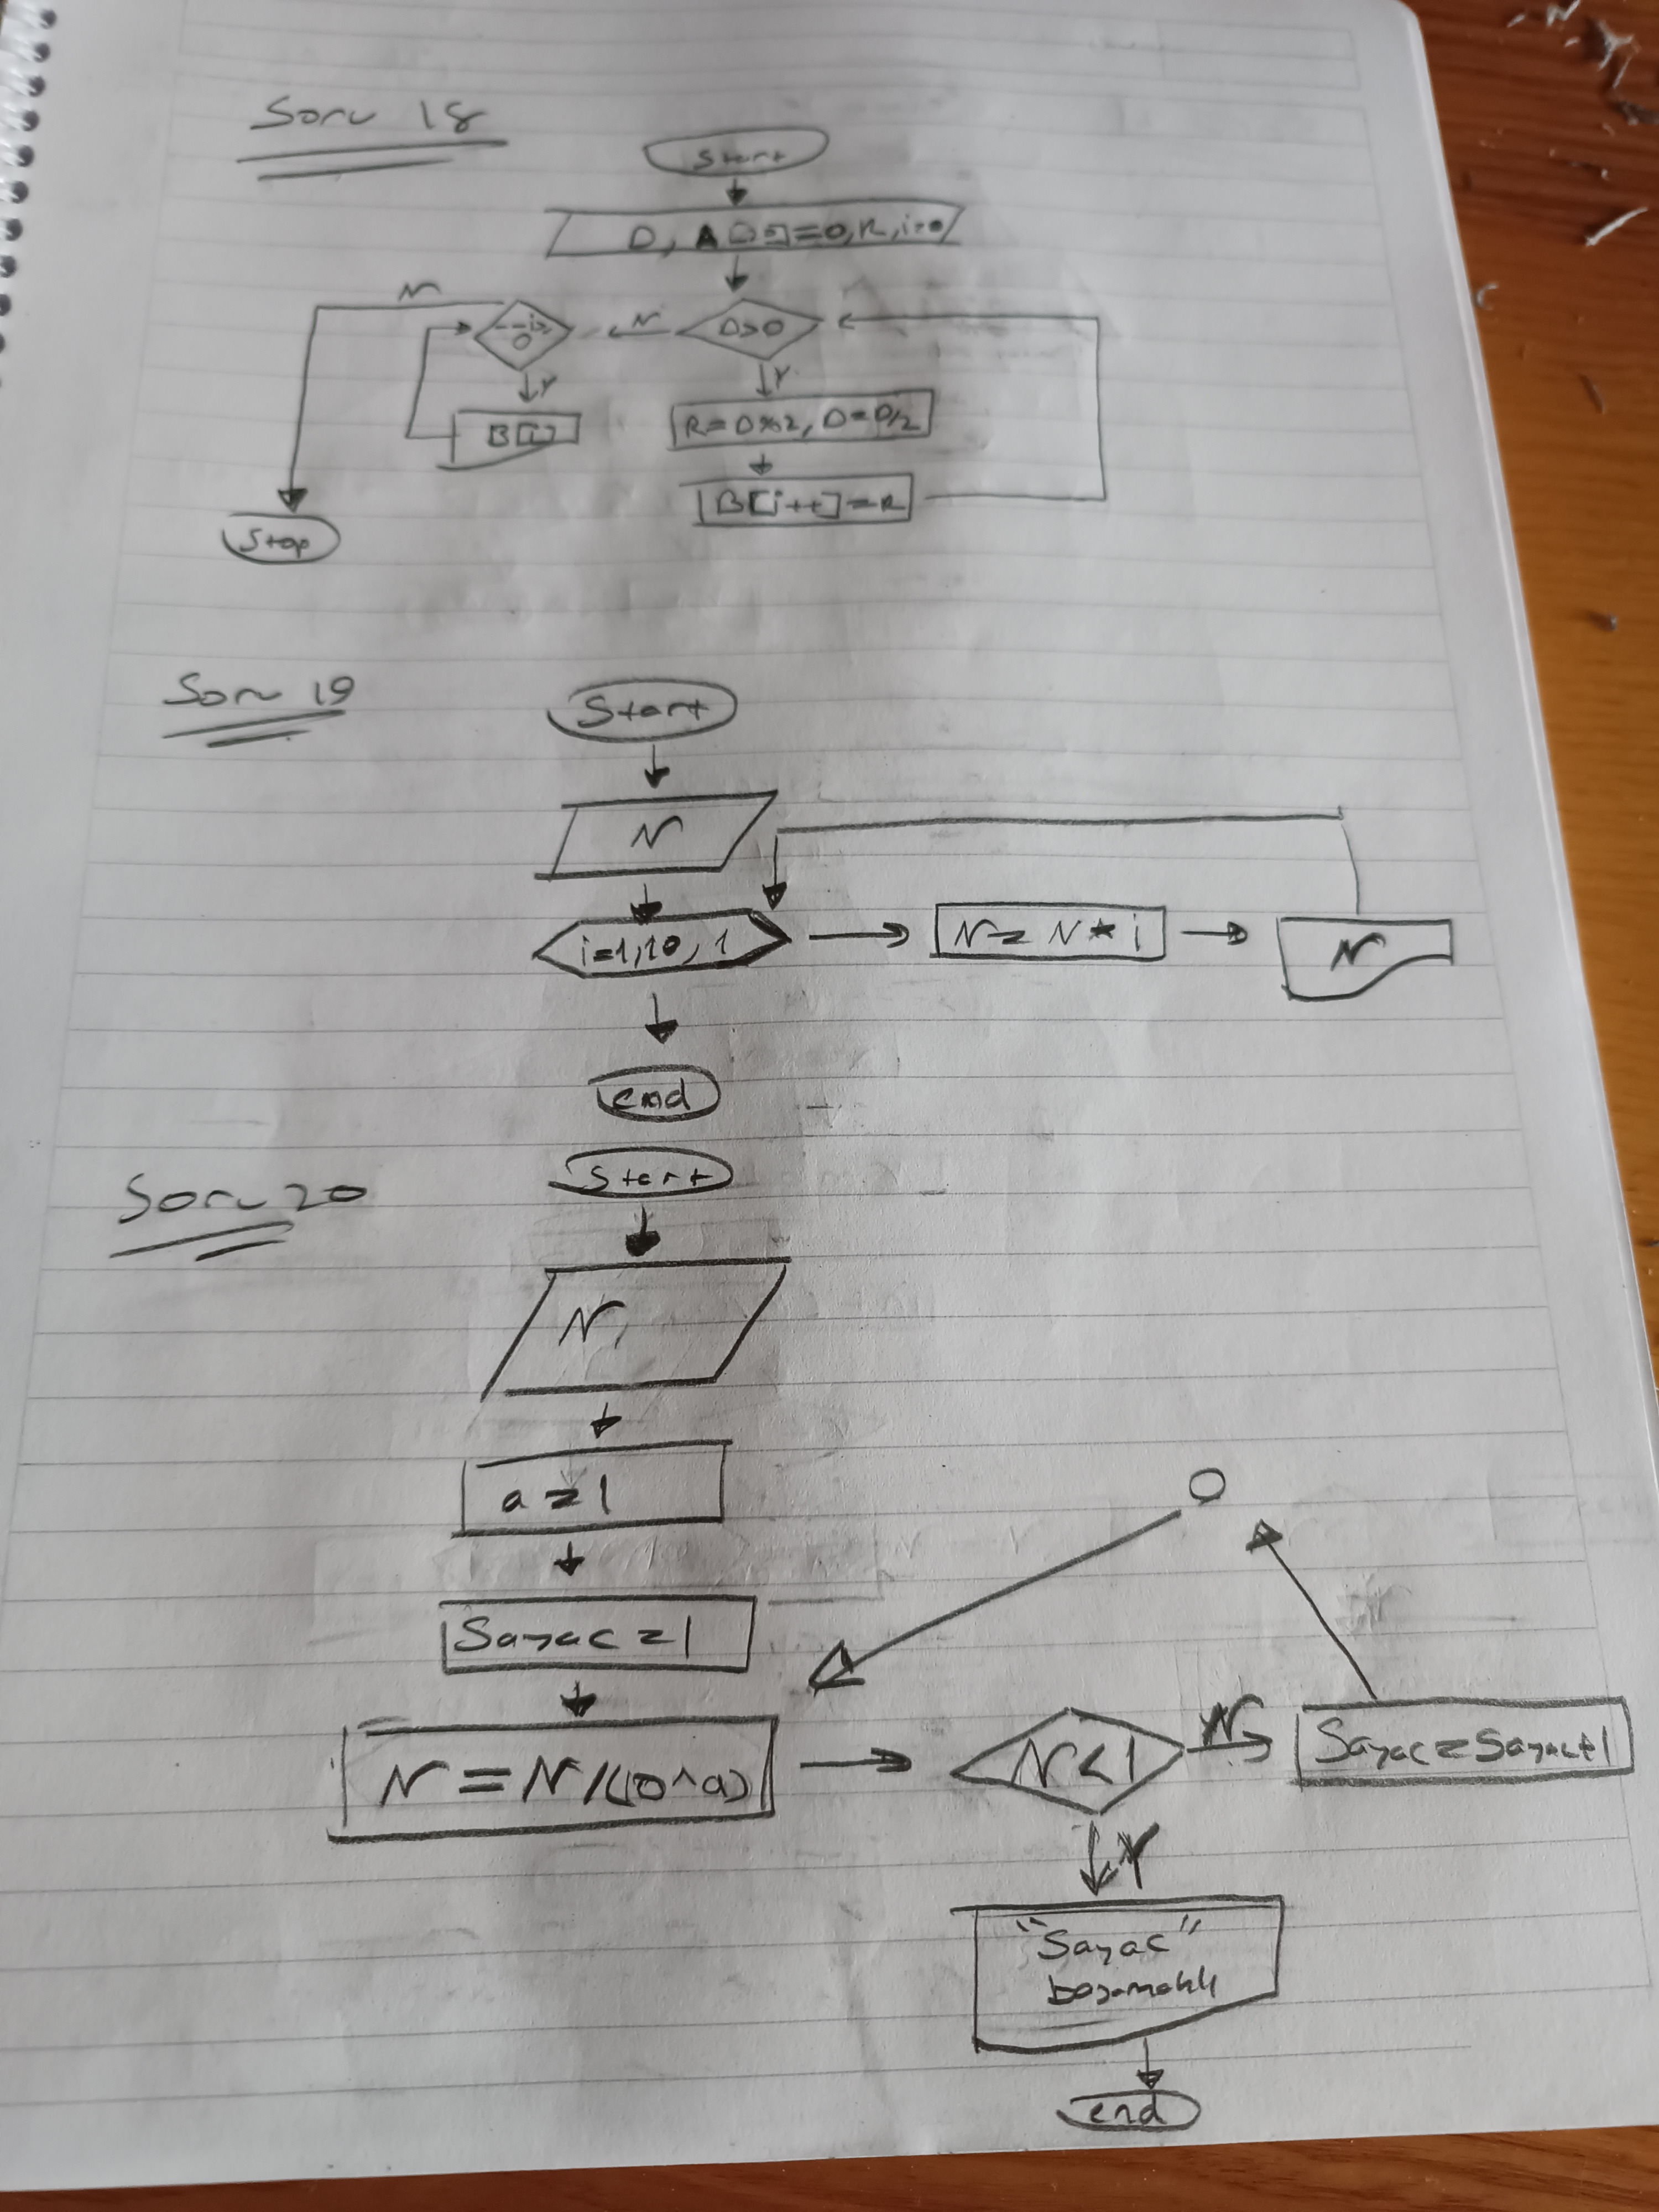 Soru 18
Start
D, A[]=0, R, i=0
N
--i>=0
N
D>0
Y
Y
B[i]
R=D%2, D=D/2
B[i++]=R
Stop
Soru 19
Start
N
i=1,10,1
N=N*i
N
end
Start
Soru 20
N,
a=1
Sayac=1
N=N/(10^a)
N<1
N
Sayac=Sayac+1
Y
"Sayac"
basamaklı
end